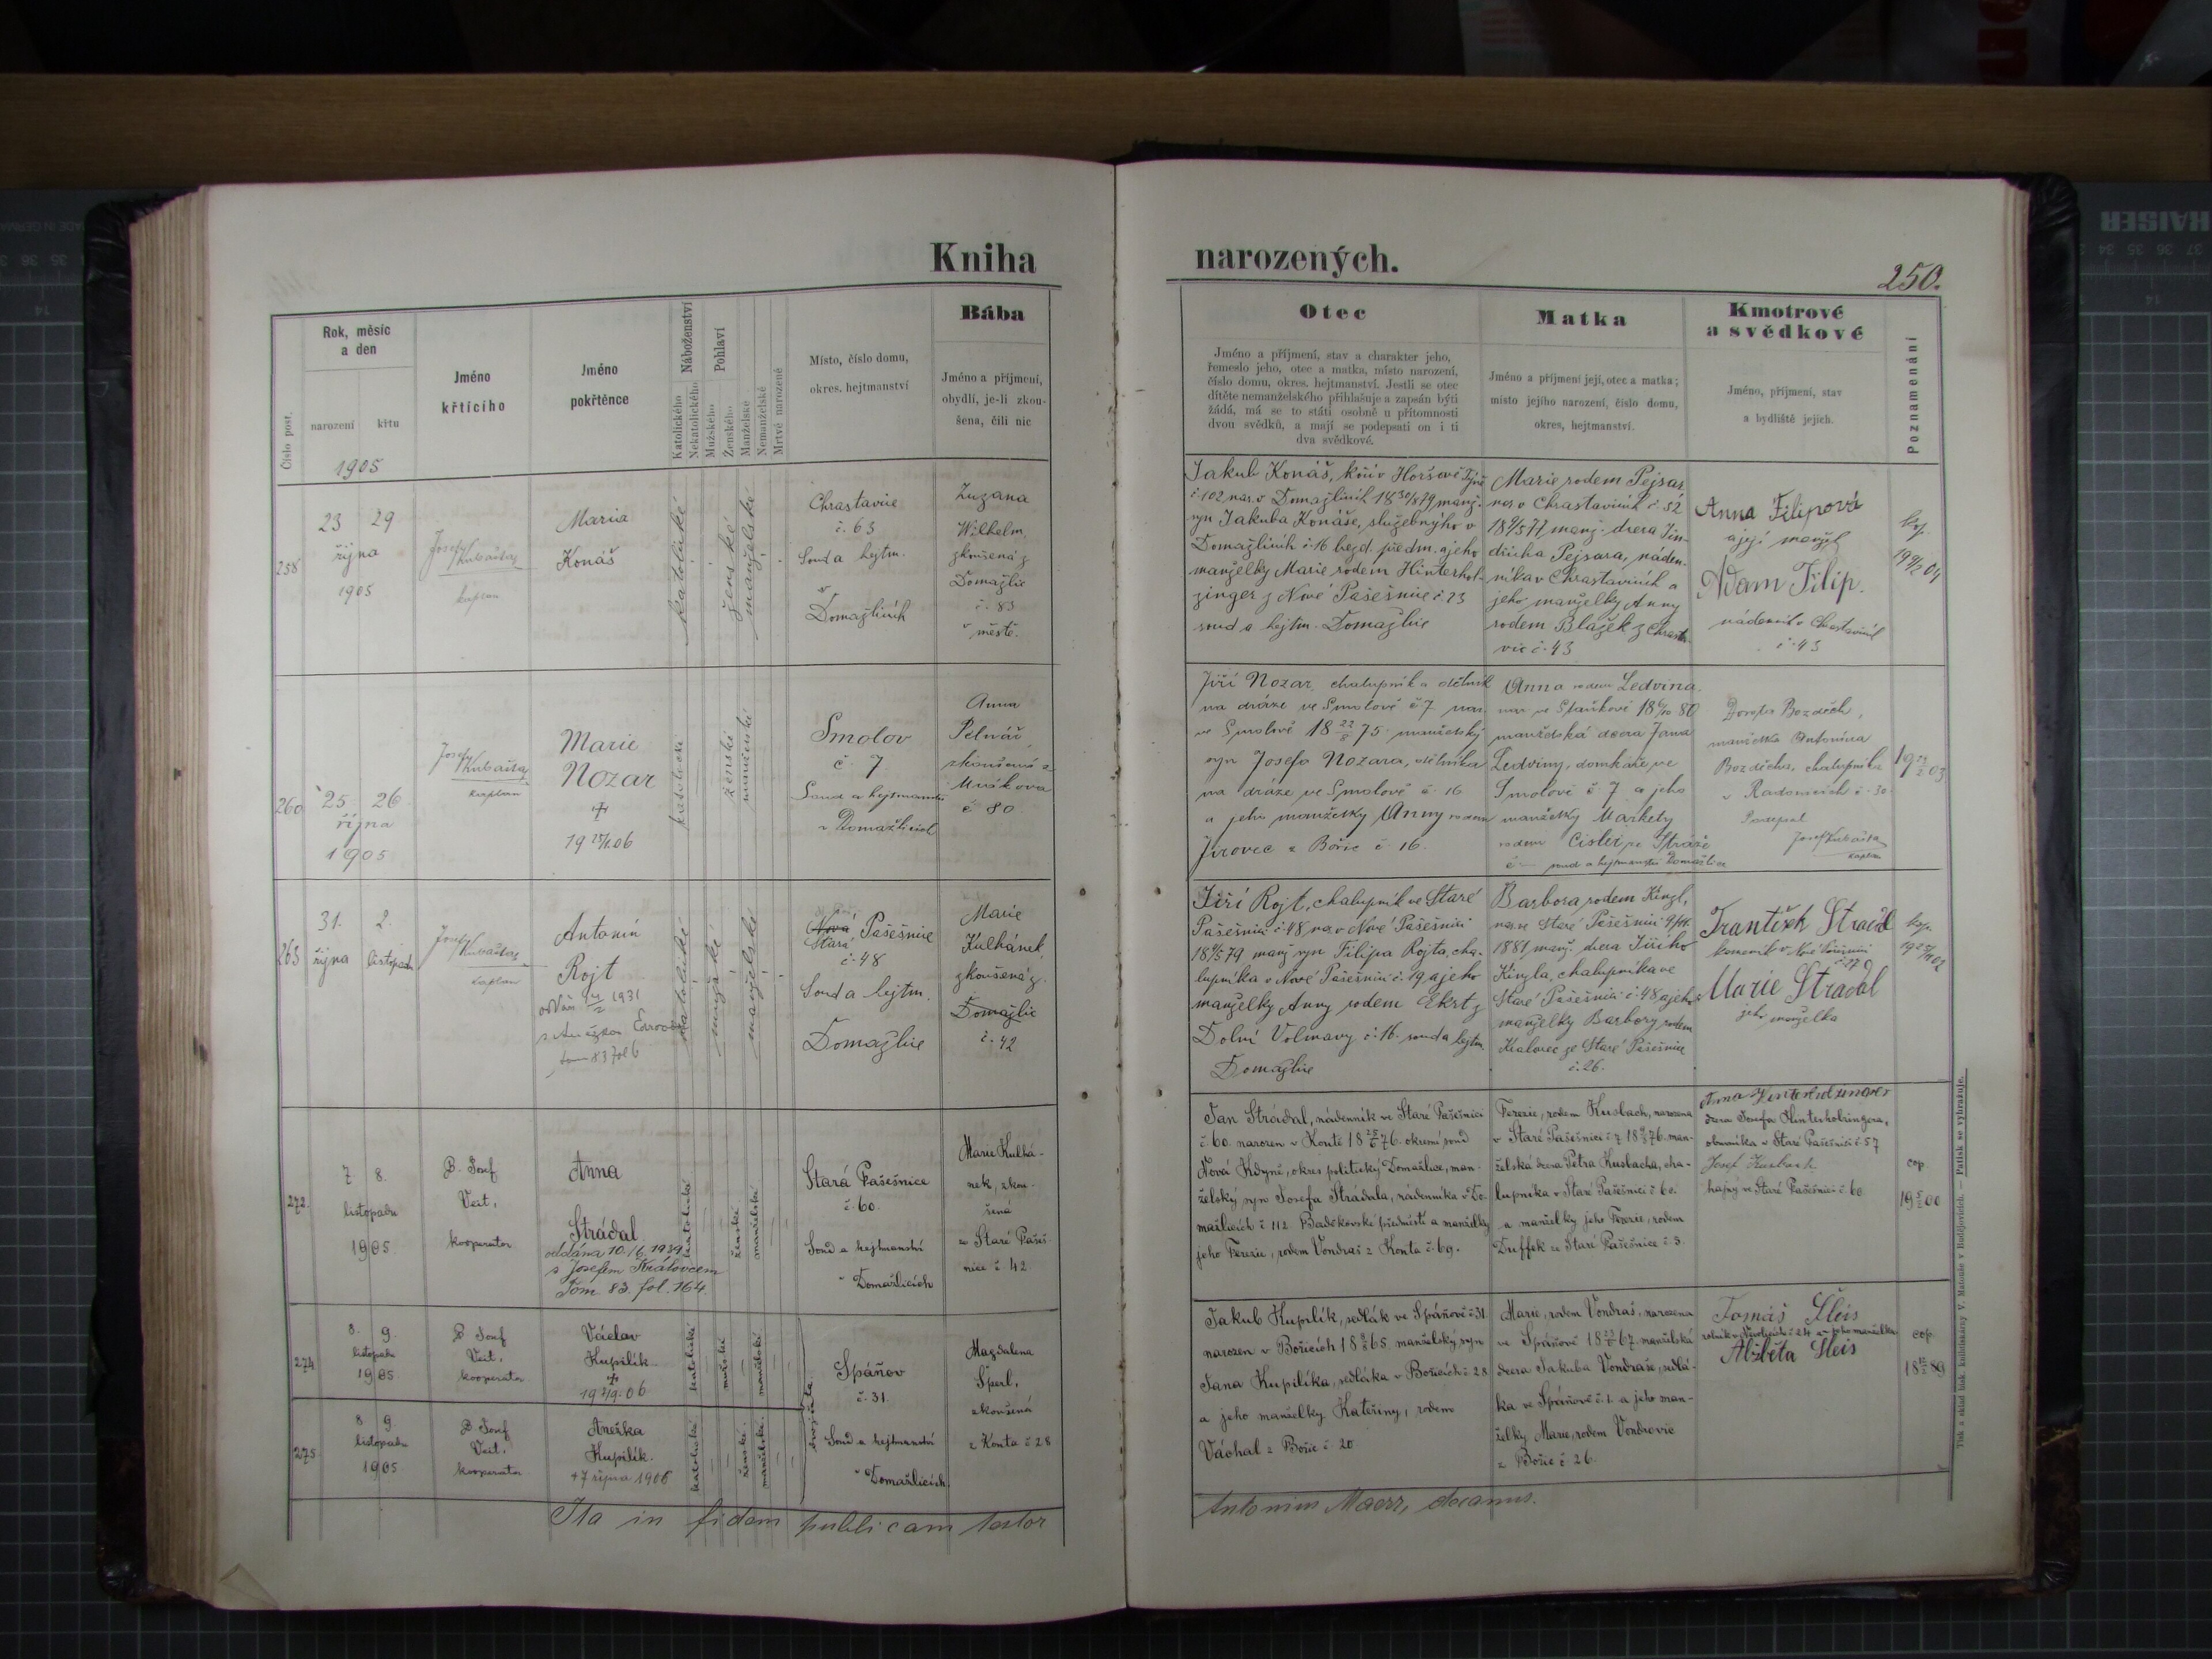 Kniha
narozených.
250.
Číslo post.
Rok, měsíc
a den
narození
křtu
1905
Jméno
křtícího
Jméno
pokřtěnce
Náboženství
Katolického
Nekatolického
Pohlaví
Mužského
Ženského
Manželské
Nemanželské
Mrtvě narozené
Místo, číslo domu,
okres. hejtmanství
Bába
Jméno a příjmení,
obydlí, je-li zkou-
šena, čili nic
Otec
Jméno a příjmení, stav a charakter jeho,
řemeslo jeho, otec a matka, místo narození,
číslo domu, okres. hejtmanství. Jestli se otec
dítěte nemanželského přihlašuje a zapsán býti
žádá, má se to státi osobně u přítomnosti
dvou svědků, a mají se podepsati on i ti
dva svědkové.
Matka
Jméno a příjmení její, otec a matka;
místo jejího narození, číslo domu,
okres, hejtmanství.
Kmotrové
a svědkové
Jméno, příjmení, stav
a bydliště jejich.
Poznamenání
258
23 29
října
1905
Josef Kubaštas
kaplan
Maria
Konáš
katolické
ženské
manželské
Chrastavice
č. 63
Soud a hejtm.
v
Domažlicích
Zuzana
Wilhelm,
zkoušená z
Domažlic
č. 83
v městě.
Jakub Konáš, kočí v Horšově Týně
č. 102 nar. v Domažlicích 18 30/8 79 manž.
syn Jakuba Konáše, služebného v
Domažlicích č. 16 bezd. předm. a jeho
manželky Marie rodem Hinterhol-
zinger z Nové Pašešnice č. 23
soud a hejtm. Domažlice
Marie rodem Pejsar
nar. v Chrastavicích č. 52
77 manž. dcera Jin-
dřicha Pejsara, náden-
níka v Chrastavicích a
jeho manželky Anny
rodem Blažek z Chrasta-
vic č. 43
Anna Filipová
a její manžel
Adam Filip.
nádenník v Chrastavicích
č. 43
260
25 26
října
1905
Josef Kubaštas
kaplan
Marie
Nozar
†
06
katolické
ženské
manželské
Smolov
č. 7
Soud a hejtmanství
v Domažlicích
Anna
Pelnář
zkoušená z
Mrákova
č 80
Jiří Nozar, chalupník a dělník
na dráze ve Smolově č 7 nar.
ve Smolově 18 75 manželský
syn Josefa Nozara, dělníka
na dráze ve Smolově č. 16
a jeho manželky Anny rodem
Jírovec z Bořic č 16.
Anna rodem Ledvina
nar. ve Staňkově 18 80
manželská dcera Jana
Ledviny, domkáře ve
Smolově č 7 a jeho
manželky Markety
rodem Cisler ze Stráže
č — soud a hejtmanství Domažlice
Dorota Bozděch,
manželka Antonína
Bozděcha, chalupníka
v Radonicích č. 30
Podepsal
Josef Kubaštas
kaplan
19 03
263
31. 2.
října listopadu
Josef Kubaštas
kaplan
Antonín
Rojt
oddán 1931
s Anežkou
tom 83 fol 6
katolické
mužské
manželské
Nová Pašešnice
Stará
č. 48
Soud a hejtm.
Domažlice
Marie
Kulhánek,
zkoušená z
Domažlic
č. 42
Jiří Rojt, chalupník ve Staré
Pašešnici č. 48, nar. v Nové Pašešnici
79 manž. syn Filipa Rojta, cha-
lupníka v Nové Pašešnici č. 19, a jeho
manželky Anny rodem Ekrt z
Dolní Volmavy č. 16. soud a hejtm.
Domažlice
Barbora rodem Königl,
nar. ve Staré Pašešnici
1881, manž. dcera Jiřího
Königla, chalupníka ve
Staré Pašešnici č. 48, a jeho
manželky Barbory rodem
Kralovec ze Staré Pašešnice
č. 26.
František Stradal
kominík v Nové Pašešnici
č. 17
Marie Stradal
jeho manželka
272.
7 8.
listopadu
1905.
P. Josef
Veit,
kooperator
Anna
Strádal
oddána 10./6. 1939
s Josefem Královcem
Tom. 83. fol. 164
katolické
ženské
manželské
Stará Pašešnice
č. 60.
Soud a hejtmanství
v Domažlicích
Marie Kulhá-
nek, zkou-
šená
ze Staré Pašeš-
nice č 42
Jan Strádal, nádenník ve Staré Pašešnici
č. 60. narozen v Koutě 18 76. okresní soud
Nová Kdyně, okres politický Domažlice, man-
želský syn Josefa Strádala, nádenníka v Do-
mažlicích č 112 Bezděkovské předměstí a manželky
jeho Terezie, rodem Vondraš z Kouta č. 69.
Terezie, rodem Kusbach, narozena
v Staré Pašešnici č 7 18 76. man-
želská dcera Petra Kusbacha, cha-
lupníka v Staré Pašešnici č 60.
a manželky jeho Terezie, rodem
Duffek ze Staré Pašešnice č 3.
Anna Hinterholzinger
dcera Josefa Hinterholzingera,
obuvníka v Staré Pašešnici č 57
Josef Kusbach
hajný ve Staré Pašešnici č. 60
cop.
19 00
274
8. 9.
listopadu
1905
P. Josef
Veit,
kooperator
Václav
Kupilík
†
06
katolické
mužské
manželské
dvojčata
Spáňov
č. 31.
Soud a hejtmanství
v Domažlicích
Magdalena
Šperl,
zkoušená
z Kouta č 28
Jakub Kupilík, sedlák ve Spáňově č. 31.
narozen v Bořicích 18 65. manželský syn
Jana Kupilíka, sedláka v Bořicích č 28
a jeho manželky Kateřiny, rodem
Váchal z Bořic č 20
Marie, rodem Vondraš, narozena
ve Spáňově 18 67. manželská
dcera Jakuba Vondraše, sedlá-
ka ve Spáňově č. 1. a jeho man-
želky Marie, rodem Vondrovic
z Bořic č 26.
Tomáš Šleis
rolník v č 24 a jeho manželka
Alžběta Šleis
cop.
18 89
275.
8 9.
listopadu
1905
P. Josef
Veit,
kooperator
Anežka
Kupilík.
† 7 října 1906
katolické
ženské
manželské
Ita in fidem publicam testor
Antonius Maerz, decanus.
Tisk a sklad knih. knihtiskárny V. Matouše v Budějovicích. — Patisk se vyhražuje.